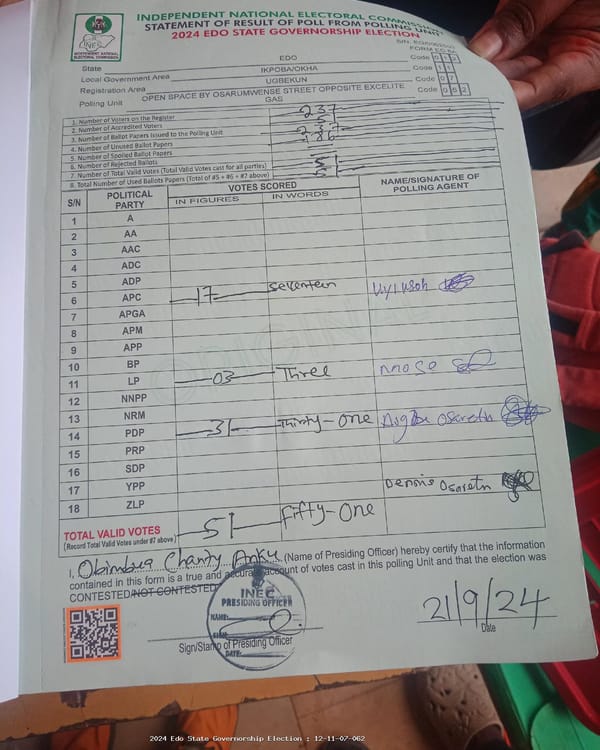 INDEPENDENT NATIONAL ELECTORAL COMMISSION
STATEMENT OF RESULT OF POLL FROM POLLING UNIT
2024 EDO STATE GOVERNORSHIP ELECTION
INEC
INDEPENDENT NATIONAL ELECTORAL COMMISSION
FORM EC 8A
State EDO Code 12
Local Government Area IKPOBA/OKHA Code
Registration Area UGBEKUN Code 07
Polling Unit OPEN SPACE BY OSARUMWENSE STREET OPPOSITE EXCELITE GAS Code 062
1. Number of Voters on the Register 237
2. Number of Accredited Voters 51
3. Number of Ballot Papers Issued to the Polling Unit 237
4. Number of Unused Ballot Papers 186
5. Number of Spoiled Ballot Papers
6. Number of Rejected Ballots
7. Number of Total Valid Votes (Total Valid Votes cast for all parties) 51
8. Total Number of Used Ballots Papers (Total of #5 + #6 + #7 above) 51
S/N POLITICAL PARTY VOTES SCORED NAME/SIGNATURE OF POLLING AGENT
IN FIGURES IN WORDS
1 A
2 AA
3 AAC
4 ADC
5 ADP
6 APC 17 Seventeen
7 APGA
8 APM
9 APP
10 BP
11 LP 03 Three
12 NNPP
13 NRM
14 PDP 31 Thirty-One
15 PRP
16 SDP
17 YPP Dennis
18 ZLP
TOTAL VALID VOTES 51 Fifty-One
(Record Total Valid Votes under #7 above)
I, Charity (Name of Presiding Officer) hereby certify that the information
contained in this form is a true and accurate account of votes cast in this polling Unit and that the election was
CONTESTED/NOT CONTESTED
INEC
PRESIDING OFFICER
NAME:
SIGN:
DATE:
Sign/Stamp of Presiding Officer
21/9/24
Date
ORIGINAL
2024 Edo State Governorship Election : 12-11-07-062